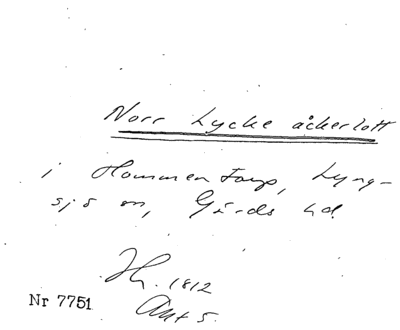 Norr Lycke åckerlott
i Hommentorp, Lyng-
sjö sn, Gärds hd.
Hh. 1812
Akt 5.
Nr 7751